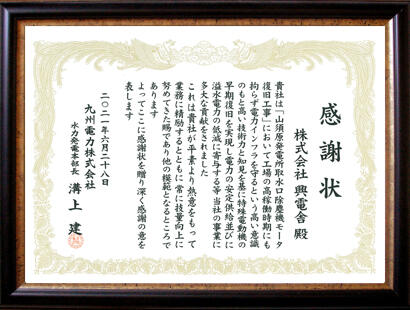 感謝状
株式会社 興電舎 殿
貴社は「山須原発電所取水口除塵機モータ
復旧工事」において工場の高稼働時期にも
拘らず電力インフラを守るという高い意識
のもと高い技術力と知見を基に特殊電動機の
早期復旧を実現し電力の安定供給並びに
溢水電力の低減に寄与する等当社の事業に
多大な貢献をされました
これは貴社が平素より熱意をもって
業務に精励するとともに常に技量向上に
努めてきた賜であり他の模範となるところで
あります
よってここに感謝状を贈り深く感謝の意を
表します
二〇二一年六月二十八日
九州電力株式会社
水力発電本部長 溝上 建